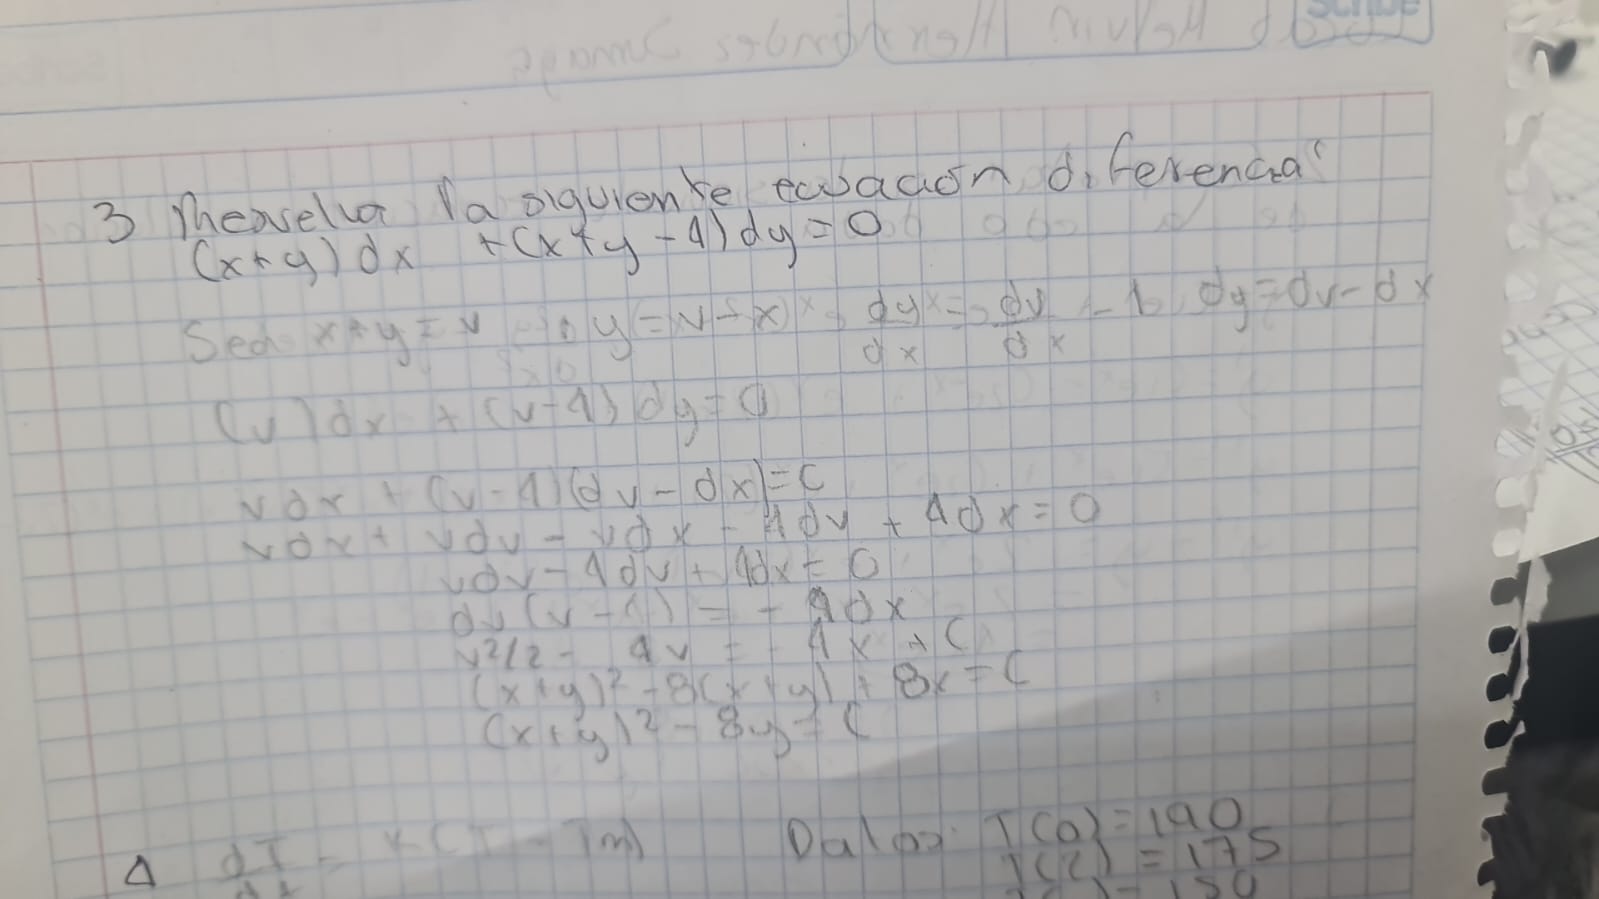 Scribe
3 Resuelva la siguiente ecuación diferencial
(x+y)dx +(x+y-4)dy=0
Sea x+y=v y=v-x dy/dx = dv/dx - 1 dy=dv-dx
(v)dx + (v-4)dy=0
vdx + (v-4)(dv-dx)=0
vdx + vdv - vdx - 4dv + 4dx = 0
vdv - 4dv + 4dx = 0
dv(v-4) = -4dx
v2/2 - 4v = -4x + C
(x+y)2 - 8(x+y) + 8x = C
(x+y)2 - 8y = C
4 dT/dt = K(T-Tm) Datos: T(0)=190
T(2)=175
=150